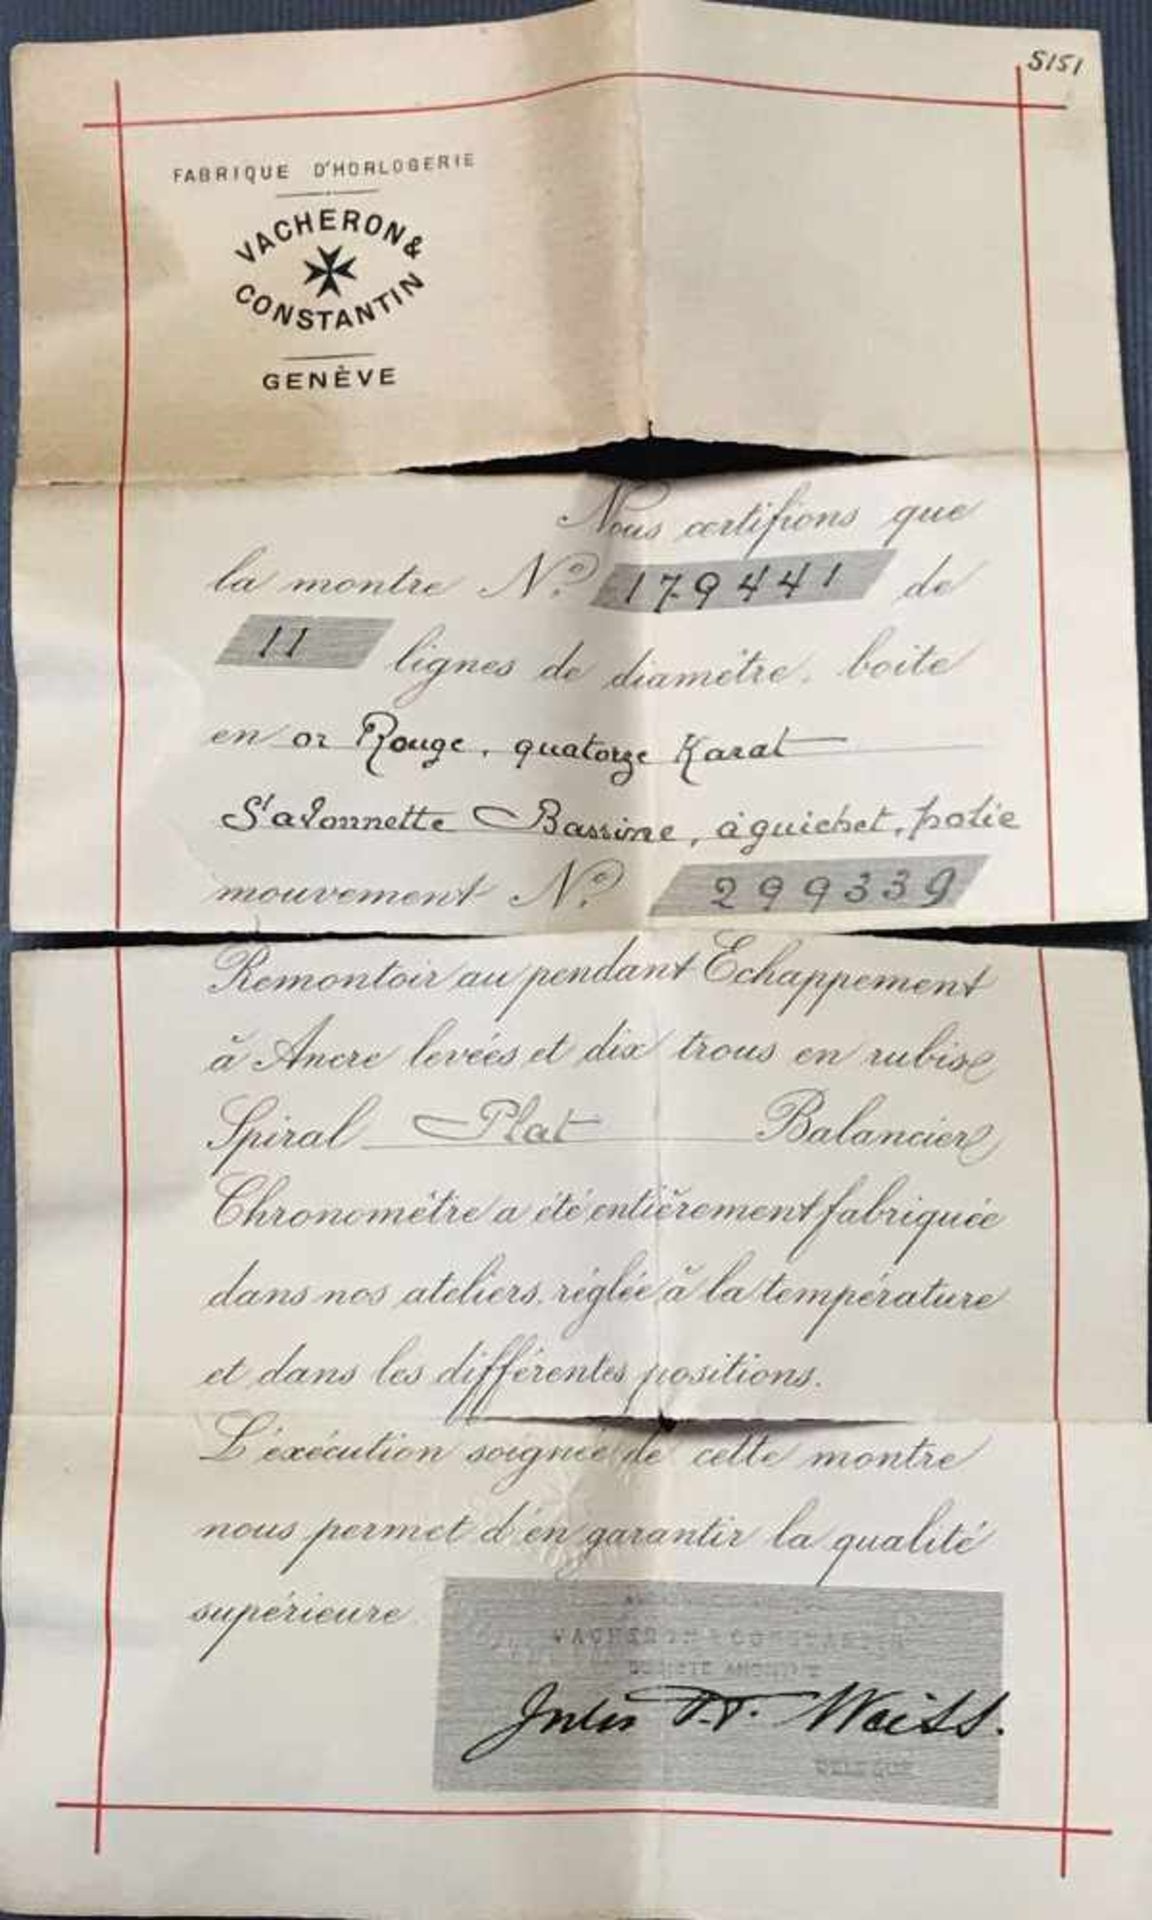 5151
FABRIQUE D'HORLOGERIE
VACHERON &
CONSTANTIN
GENÈVE
Nous certifions que
la montre No. 179441 de
11 lignes de diamètre, boite
en or Rouge, quatorze Karat
Savonnette Bassine, à guichet, polie
mouvement No. 299339
Remontoir au pendant Echappement
à Ancre levées et dix trous en rubis
Spiral Plat Balancier
Chronomètre a été entièrement fabriquée
dans nos ateliers, réglée à la température
et dans les différentes positions.
L'éxécution soignée de cette montre
nous permet d'en garantir la qualité
supérieure.
VACHERON & CONSTANTIN
SOCIÉTÉ ANONYME
Jules Weiss.